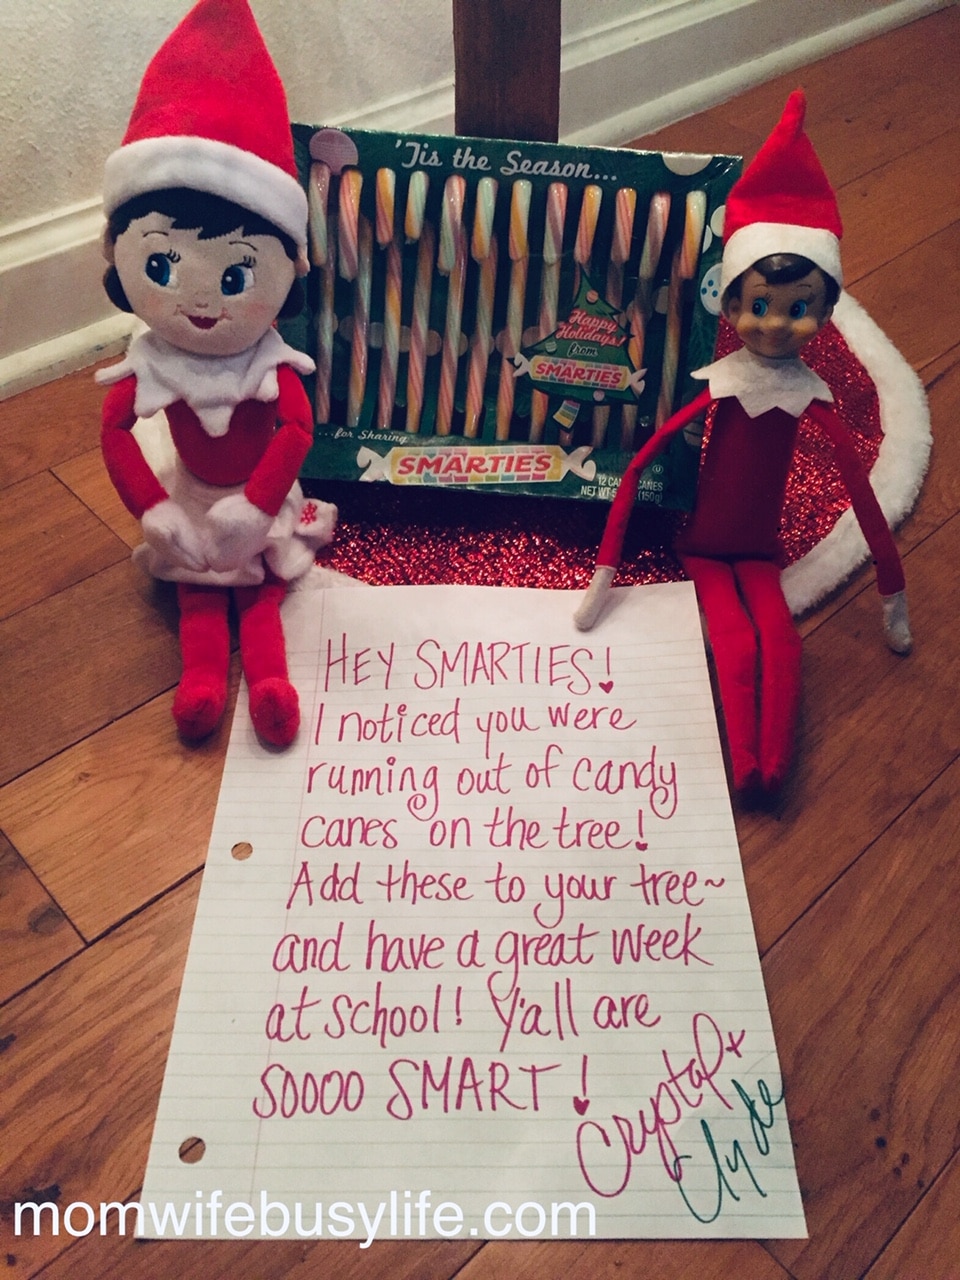 'Tis the Season...
Happy
Holidays!
from
SMARTIES
...for Sharing
SMARTIES
12 CANDY CANES
NET WT (150g)
HEY SMARTIES!
I noticed you were
running out of candy
canes on the tree!
Add these to your tree~
and have a great week
at school! Y'all are
SOOOO SMART!
Crystal +
Clyde
momwifebusylife.com